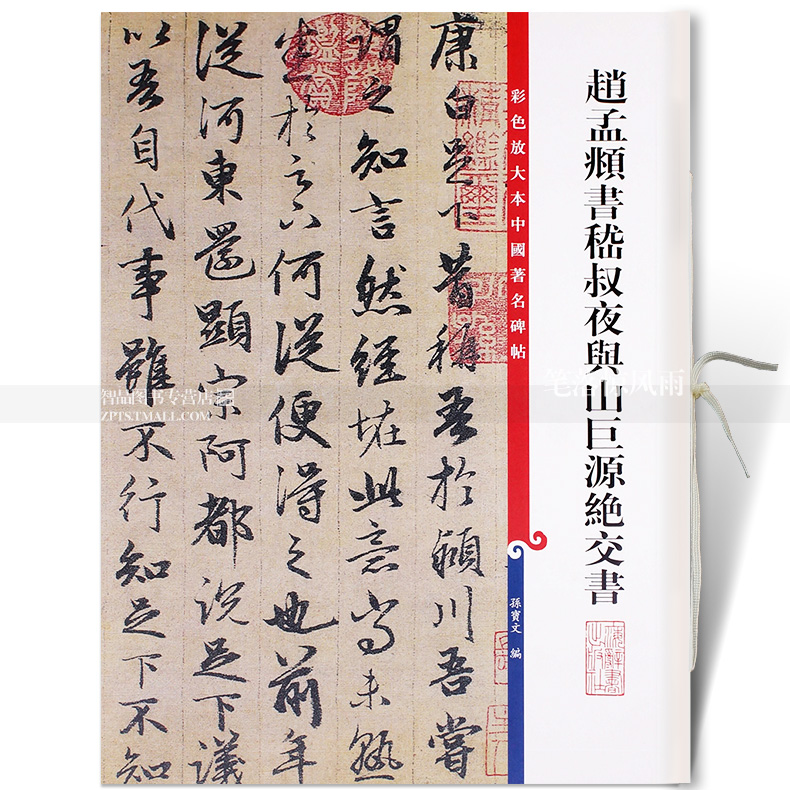 趙孟頫書嵇叔夜與山巨源絶交書
彩色放大本中國著名碑帖
孫寶文 編
康白足下昔稱吾於潁川吾嘗
謂之知言然經恠此意尚未熟
於足下何從便得之也前年
從河東還顯宗阿都説足下議
以吾自代事雖不行知足下不知
智品图书专营店
ZPTS.TMALL.COM
笔落惊风雨